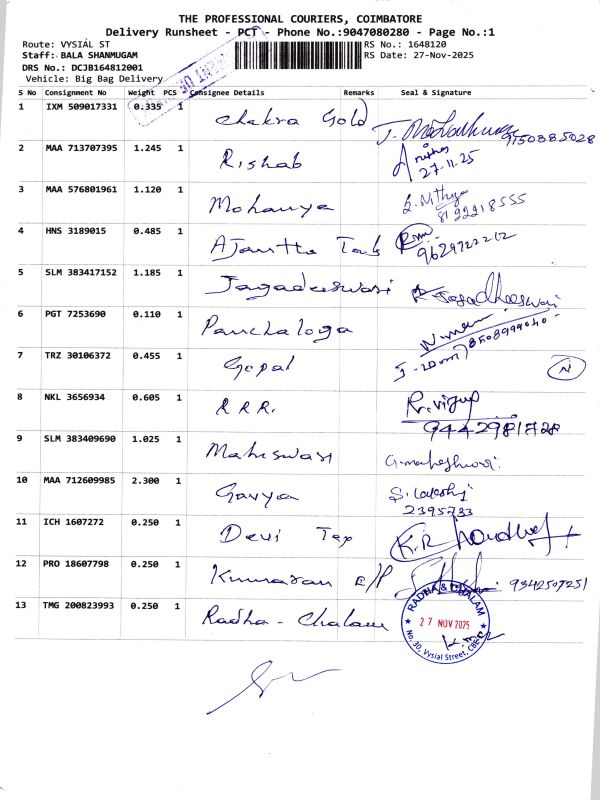 THE PROFESSIONAL COURIERS, COIMBATORE
Delivery Runsheet - PCT - Phone No.:9047080280 - Page No.:1
Route: VYSIAL ST RS No.: 1648120
Staff: BALA SHANMUGAM RS Date: 27-Nov-2025
DRS No.: DCJB164812001
Vehicle: Big Bag Delivery
S No Consignment No Weight PCS Consignee Details Remarks Seal & Signature
1 IXM 509017331 0.335 1 Chakra Gold 9150385028
2 MAA 713707395 1.245 1 Rishab
27-11-25
3 MAA 576801961 1.120 1 Mohanya S. Nithya
8122218555
4 HNS 3189015 0.485 1 Ajantha Tab
9629722212
5 SLM 383417152 1.185 1 Jagadeeswari Jagadheeswari
6 PGT 7253690 0.110 1 Panchaloga
8508999040
7 TRZ 30106372 0.455 1 Gopal N
8 NKL 3656934 0.605 1 R.R.R.
9442981728
9 SLM 383409690 1.025 1 Maheswari G. maheshwari
10 MAA 712609985 2.300 1 Gavya
2395733
11 ICH 1607272 0.250 1 Devi Tex K.R
12 PRO 18607798 0.250 1 Kumaran E/P 9342507251
13 TMG 200823993 0.250 1 Radha - Chalam
RADHA & CHALAM
27 NOV 2025
No. 30, Vysial Street, CBE